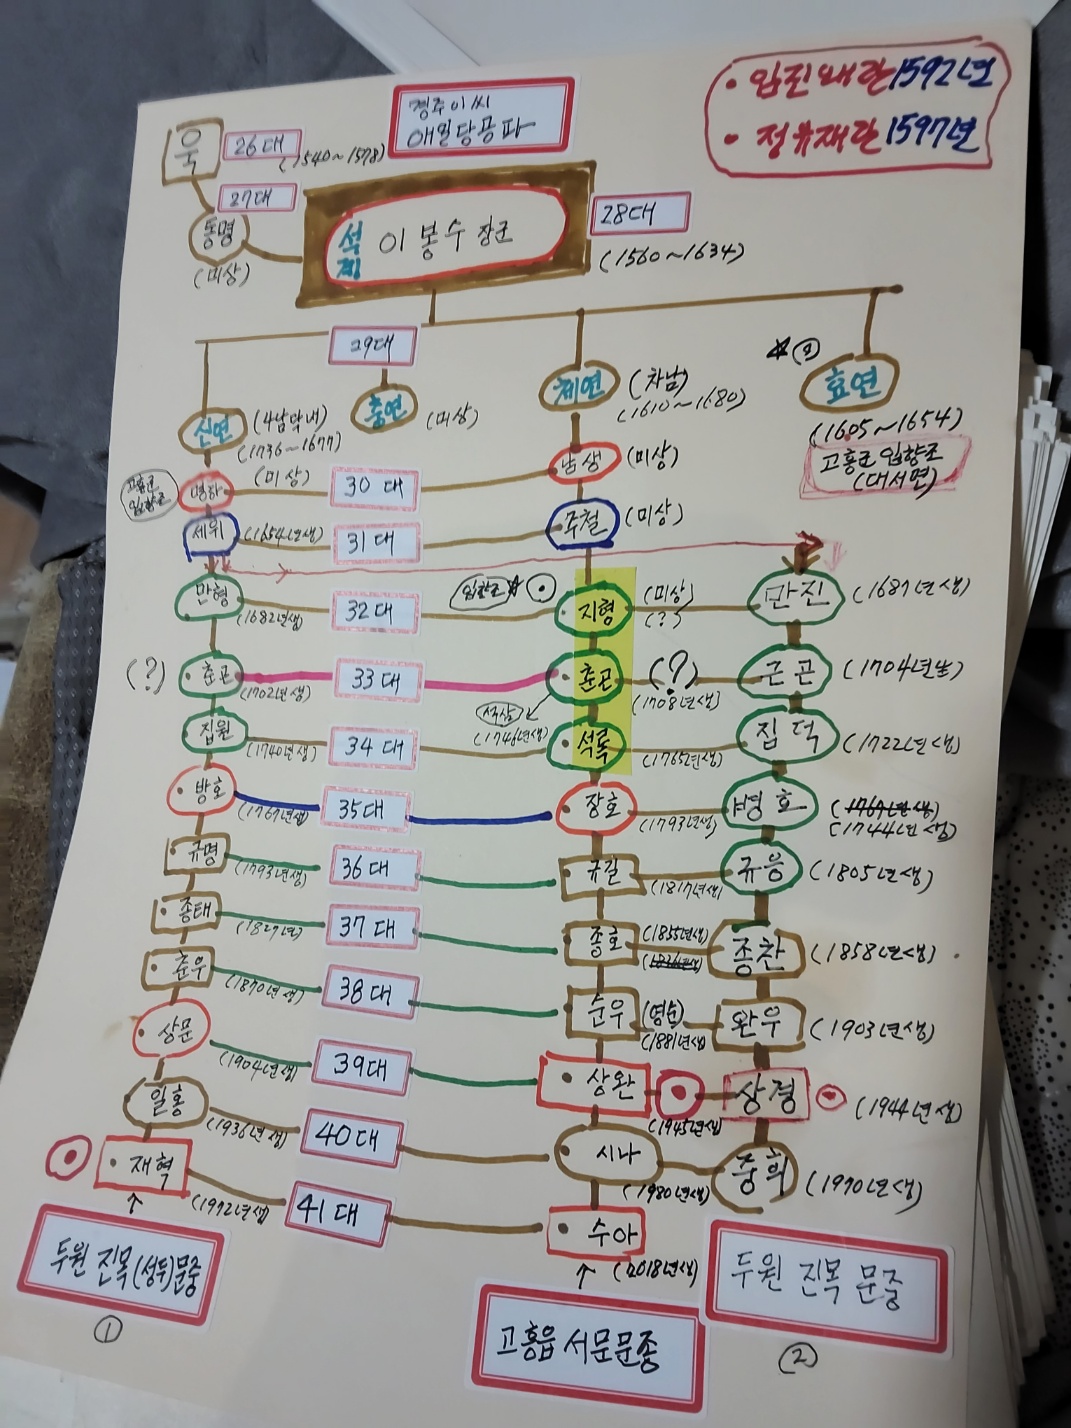 경주이씨
애일당공파
• 임진왜란 1592년
• 정유재란 1597년
욱
26대
(1540~1578)
27대
동명
(미상)
이봉수 장군
28대
(1560~1634)
29대
신연
(4남막내)
(1736~1677)
충연
(미상)
체연
(차남)
(1610~1680)
★②
효연
(1605~1654)
고흥군 입향조
(대서면)
고흥군
입향조
(미상)
30대
남생
(미상)
세위
(1654년생)
31대
주철
(미상)
만형
(1682년생)
32대
입향조
지형
(미상)
(?)
만진
(1687년생)
(?)
춘곤
(1702년생)
33대
춘곤
(?)
(1708년생)
근곤
(1704년생)
집원
(1740년생)
34대
(1746년생)
석록
(1765년생)
집덕
(1722년생)
방호
(1767년생)
35대
장호
(1793년생)
병호
(1767년생)
(1744년생)
규명
(1793년생)
36대
규길
(1817년생)
규응
(1805년생)
종태
(1827년)
37대
종호
(1855년생)
종찬
(1858년생)
춘우
(1870년생)
38대
순우
(영순)
(1881년생)
완우
(1903년생)
상문
(1904년생)
39대
상완
(1945년생)
상경
(1944년생)
일홍
(1936년생)
40대
시나
(1980년생)
중희
(1970년생)
재혁
(1972년생)
41대
수아
(2018년생)
두원 진목(성두)문중
①
고흥읍 서문문중
두원 진목 문중
②